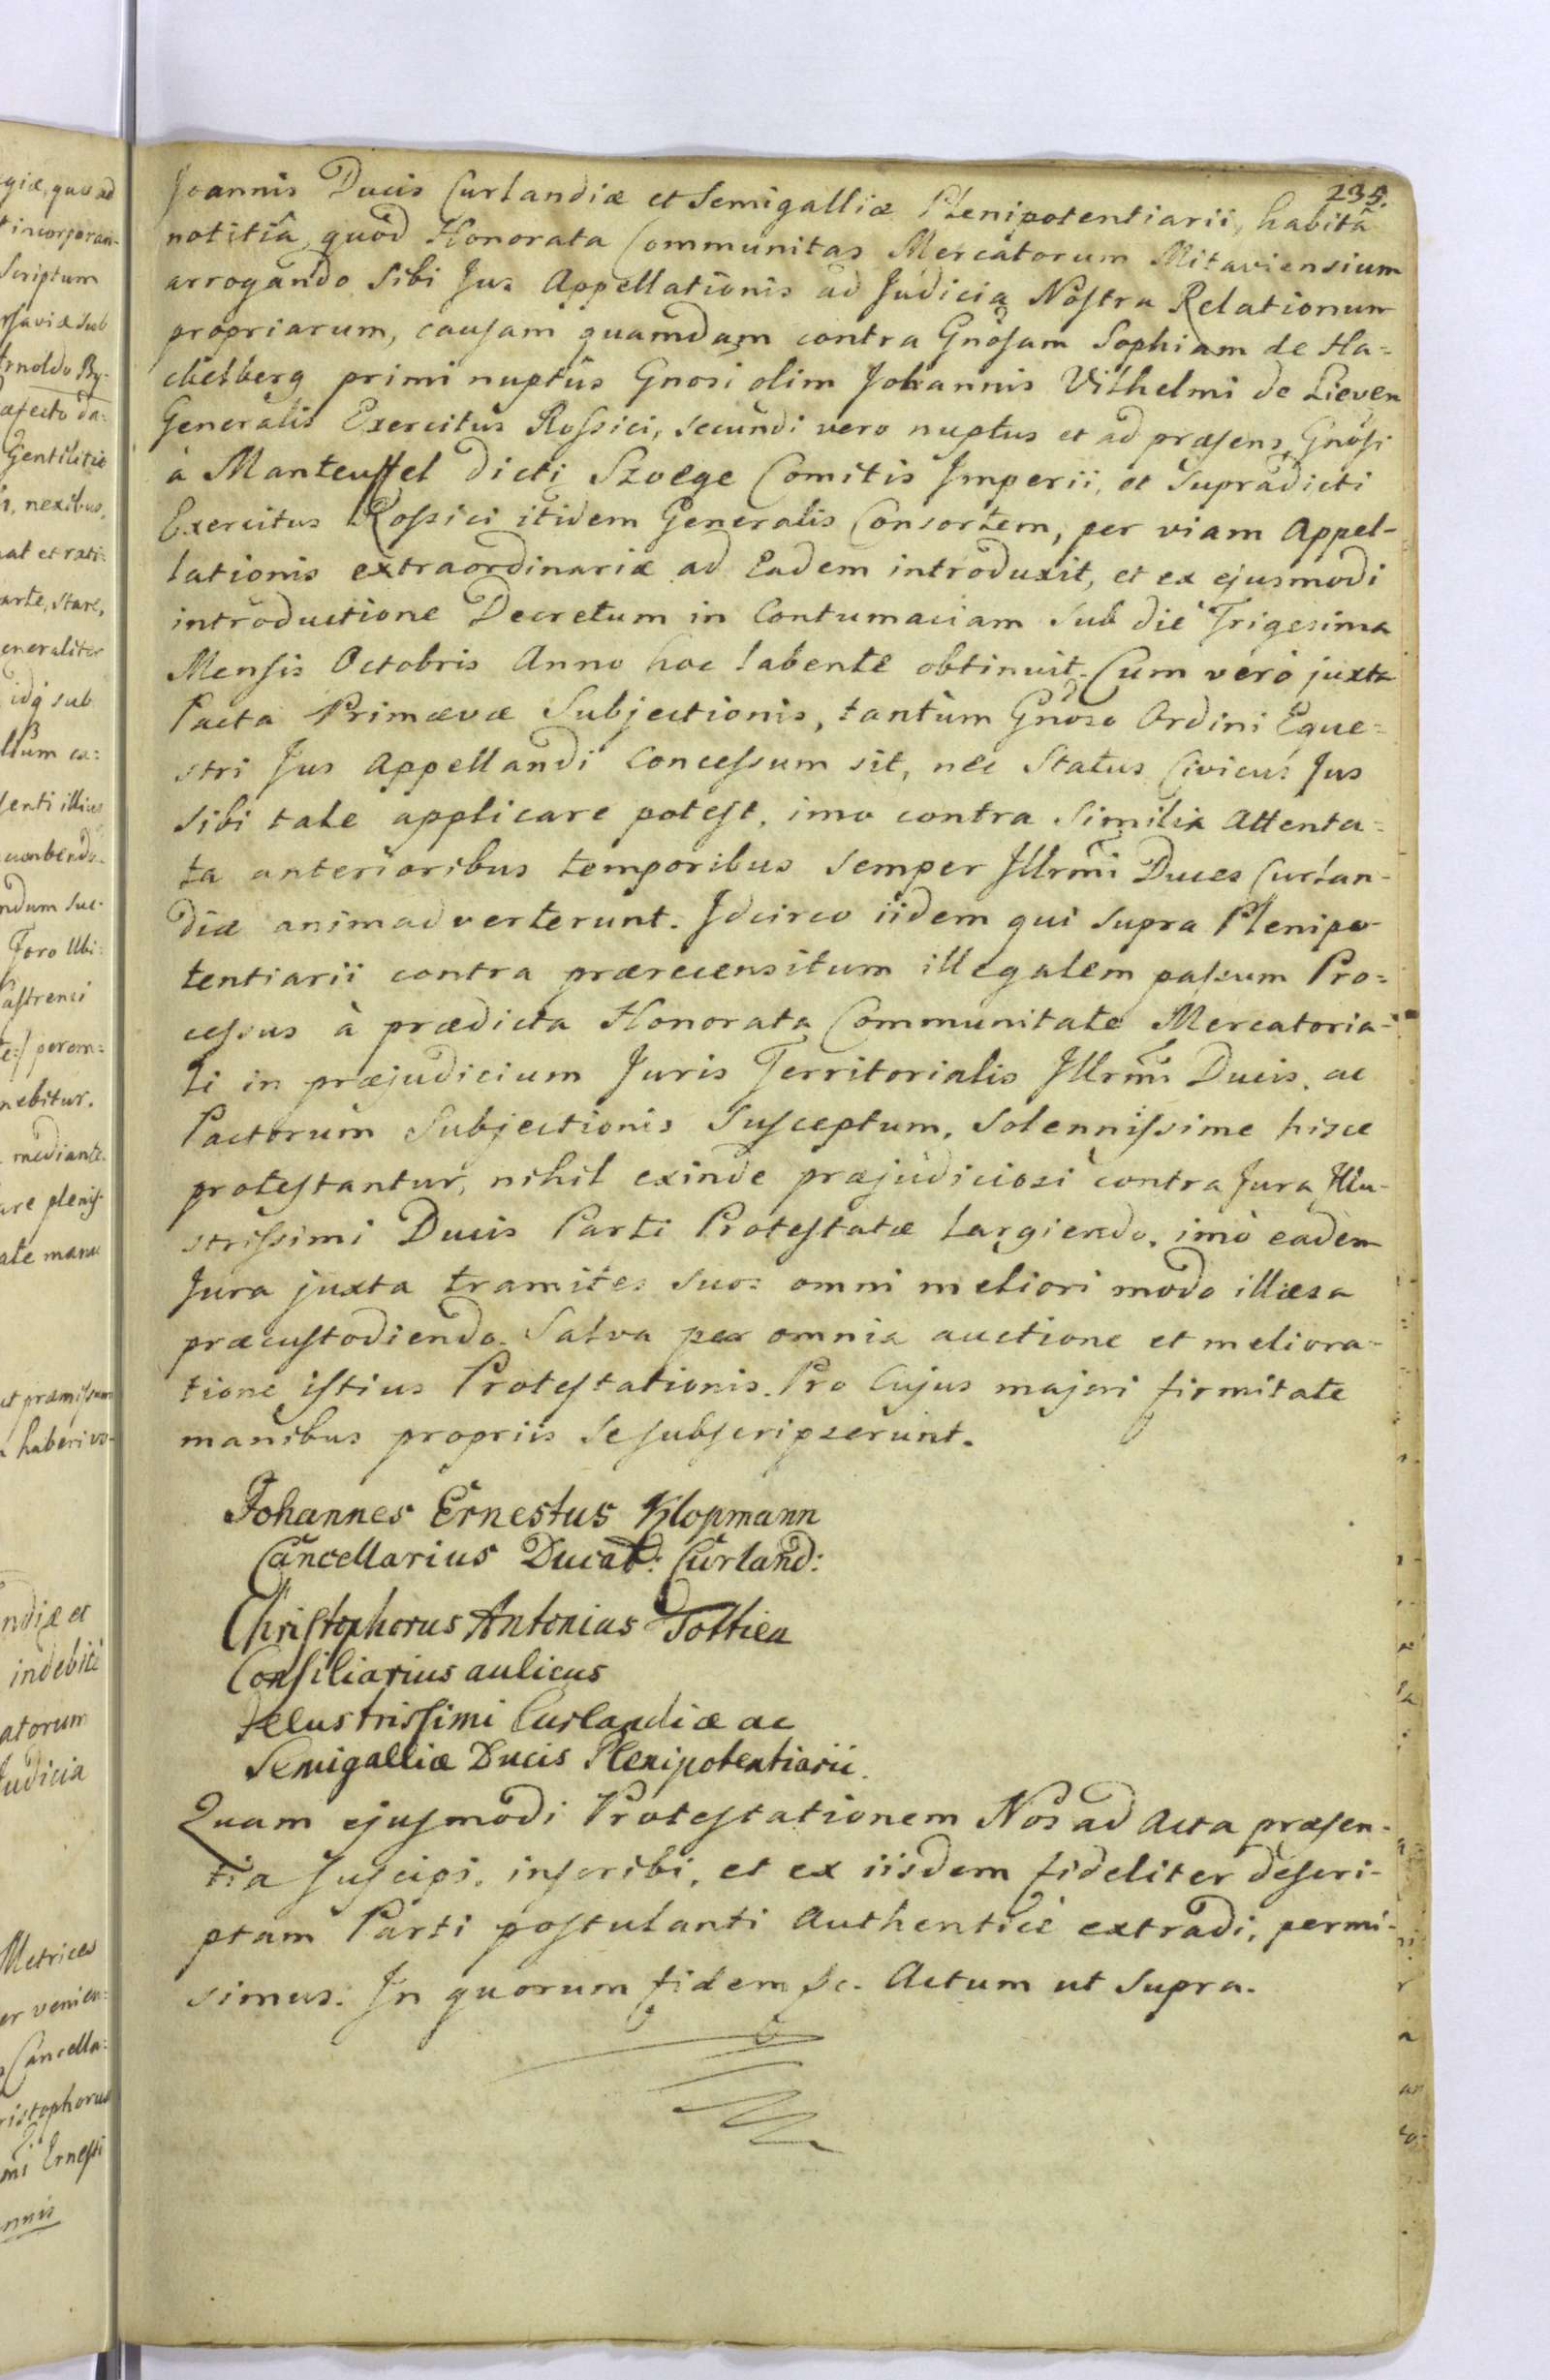 235.
Joannis Ducis Curlandiæ et Semigalliæ Plenipotentiarii, habitâ
notitiâ, quòd Honorata Communitas Mercatorum Mitaviensium
arrogando sibi Jus Appellationis ad Judicia Nostra Relationum
propriarum, causam quamdam contra Gnosam Sophiam de Ha=
chelberg primi nuptûs Gnosi olim Johannis Vilhelmi de Lieven
Generalis Exercitus Rossici, secundi vero nuptus et ad præsens Gnosi
à Manteuffel dicti Szoege Comitis Imperii, et supradicti
Exercitus Rossici itidem Generalis Consortem, per viam Appel-
lationis extraordinariæ ad Eadem introduxit, et ex ejusmodi
introductione Decretum in Contumaciam sub die Trigesima
Mensis Octobris Anno hoc labente obtinuit. Cum verò juxta
Pacta Primævæ Subjectionis, tantùm Gnoso Ordini Eque=
stri Jus Appellandi concessum sit, nec Status Civicus Jus
sibi tale applicare potest, imo contra similia Attenta=
ta anterioribus temporibus semper Illrmi Duces Curlan-
diæ animadverterunt. Idcirco iidem qui supra Plenipo-
tentiarii contra prærecensitum illegalem passum Pro=
cessus à prædicta Honorata Communitate Mercatoria-
li in præjudicium Juris Territorialis Illrmi Ducis, ac
Pactorum Subjectionis susceptum, solennissime hisce
protestantur, nihil exinde præjudiciosi contra Jura Illu-
strissimi Ducis Parti Protestatæ largiendo, imò eadem
Jura juxta tramites suos omni meliori modo illæsa
præcustodiendo. Salva per omnia auctione et meliora-
tione istius Protestationis. Pro Cujus majori firmitate
manibus propriis se subscripserunt.
Johannes Ernestus Klopmann
Cancellarius Ducat: Curland:
Christophorus Antonius Tottien
Consiliarius aulicus
Illustrissimi Curlandiæ ac
Semigalliæ Ducis Plenipotentiarii.
Quam ejusmodi Protestationem Nos ad Acta præsen-
tia suscipi, inscribi, et ex iisdem fideliter descri-
ptam Parti postulanti Authenticè extradi, permi-
simus. In quorum fidem &c. Actum ut supra.